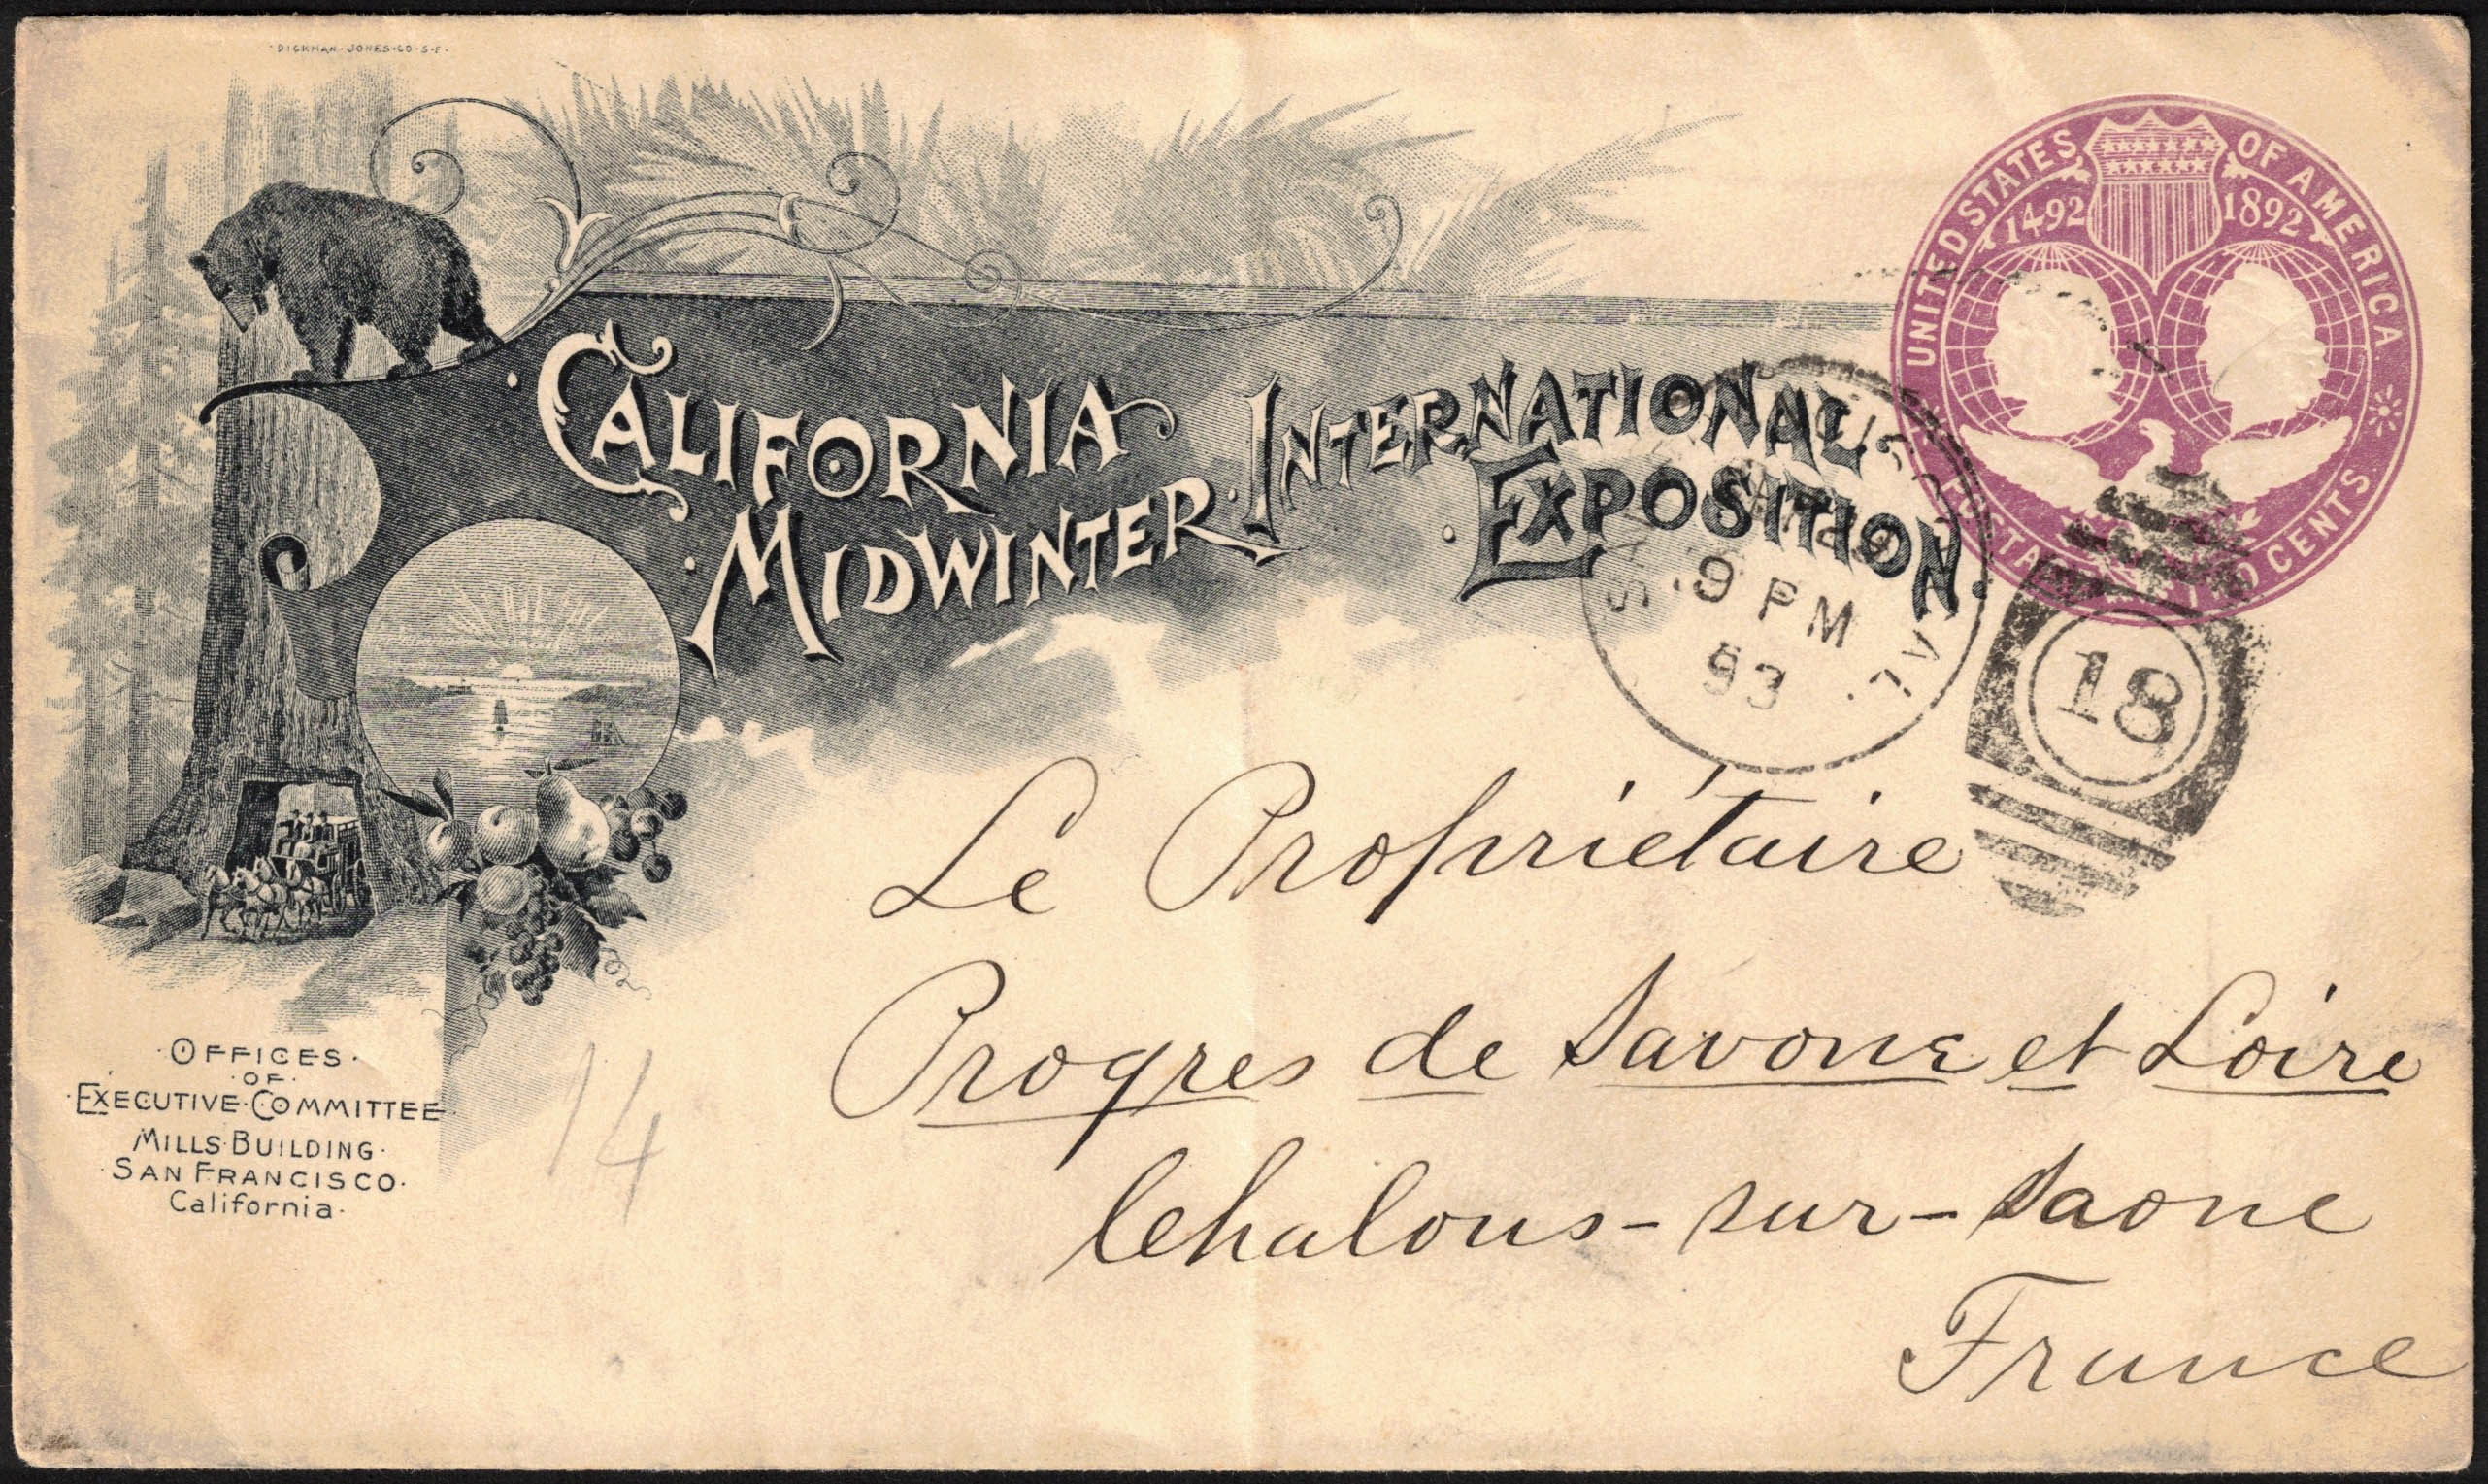 DICKMAN-JONES-CO-S-F-
UNITED STATES OF AMERICA
1492 1892
POSTAGE TWO CENTS
CALIFORNIA
MIDWINTER
INTERNATIONAL
EXPOSITION.
9 PM
93
CAL.
18
Le Propriétaire
Progres de Savone et Loire
Chalons-sur-Saone
France
14
·OFFICES·
·OF·
·EXECUTIVE·COMMITTEE·
MILLS·BUILDING·
·SAN FRANCISCO·
California·